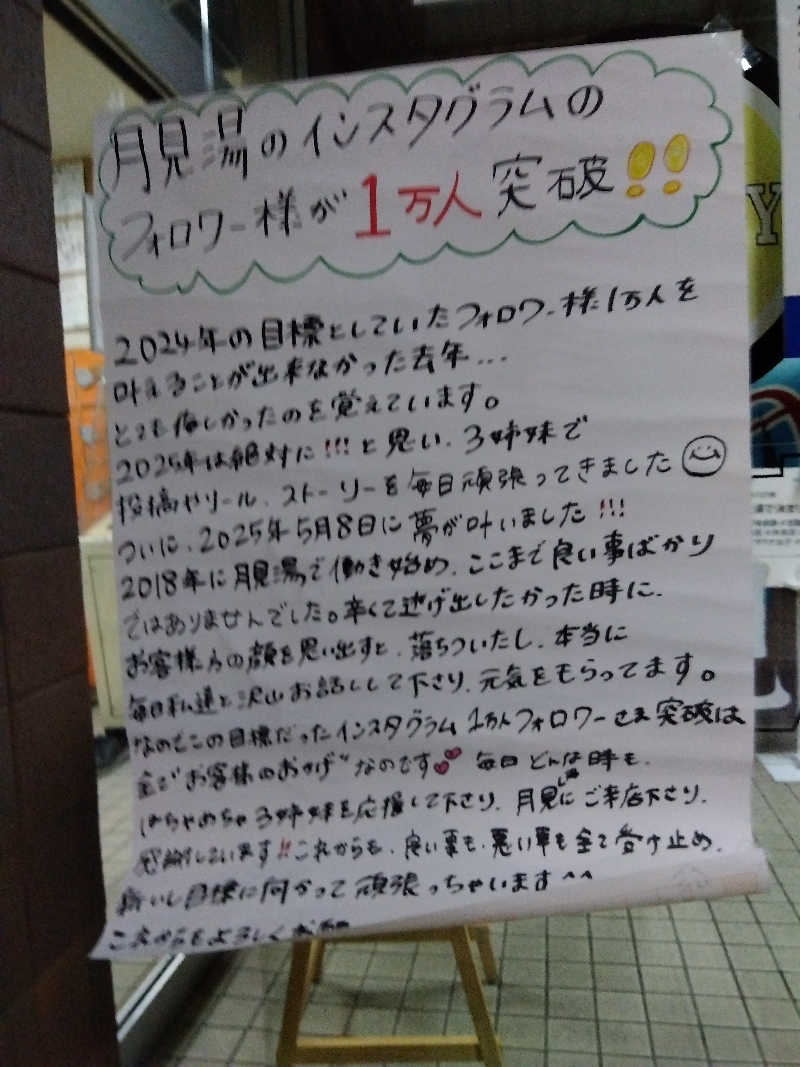 月見湯のインスタグラムの
フォロワー様が1万人突破!!
2024年の目標としていたフォロワー様1万人を
叶えることが出来なかった去年...
とても悔しかったのを覚えています。
2025年は絶対に!!!と思い、3姉妹で
投稿やリール、ストーリーを毎日頑張ってきました
ついに、2025年5月8日に夢が叶いました!!!
2018年に月見湯で働き始め、ここまで良い事ばかり
ではありませんでした。辛くて逃げ出したかった時に、
お客様方の顔を思い出すと、落ちついたし、本当に
毎日私達と沢山お話しして下さり、元気をもらってます。
なのでこの目標だったインスタグラム1万人フォロワーさま突破は
全て"お客様のおかげ"なのです 毎日どんな時も、
はちゃめちゃ3姉妹を応援して下さり、月見湯にご来店下さり、
感謝しています!!これからも、良い事も、悪い事も全て受け止め、
新しい目標に向かって頑張っちゃいます^^
これからもよろしくお願
Y